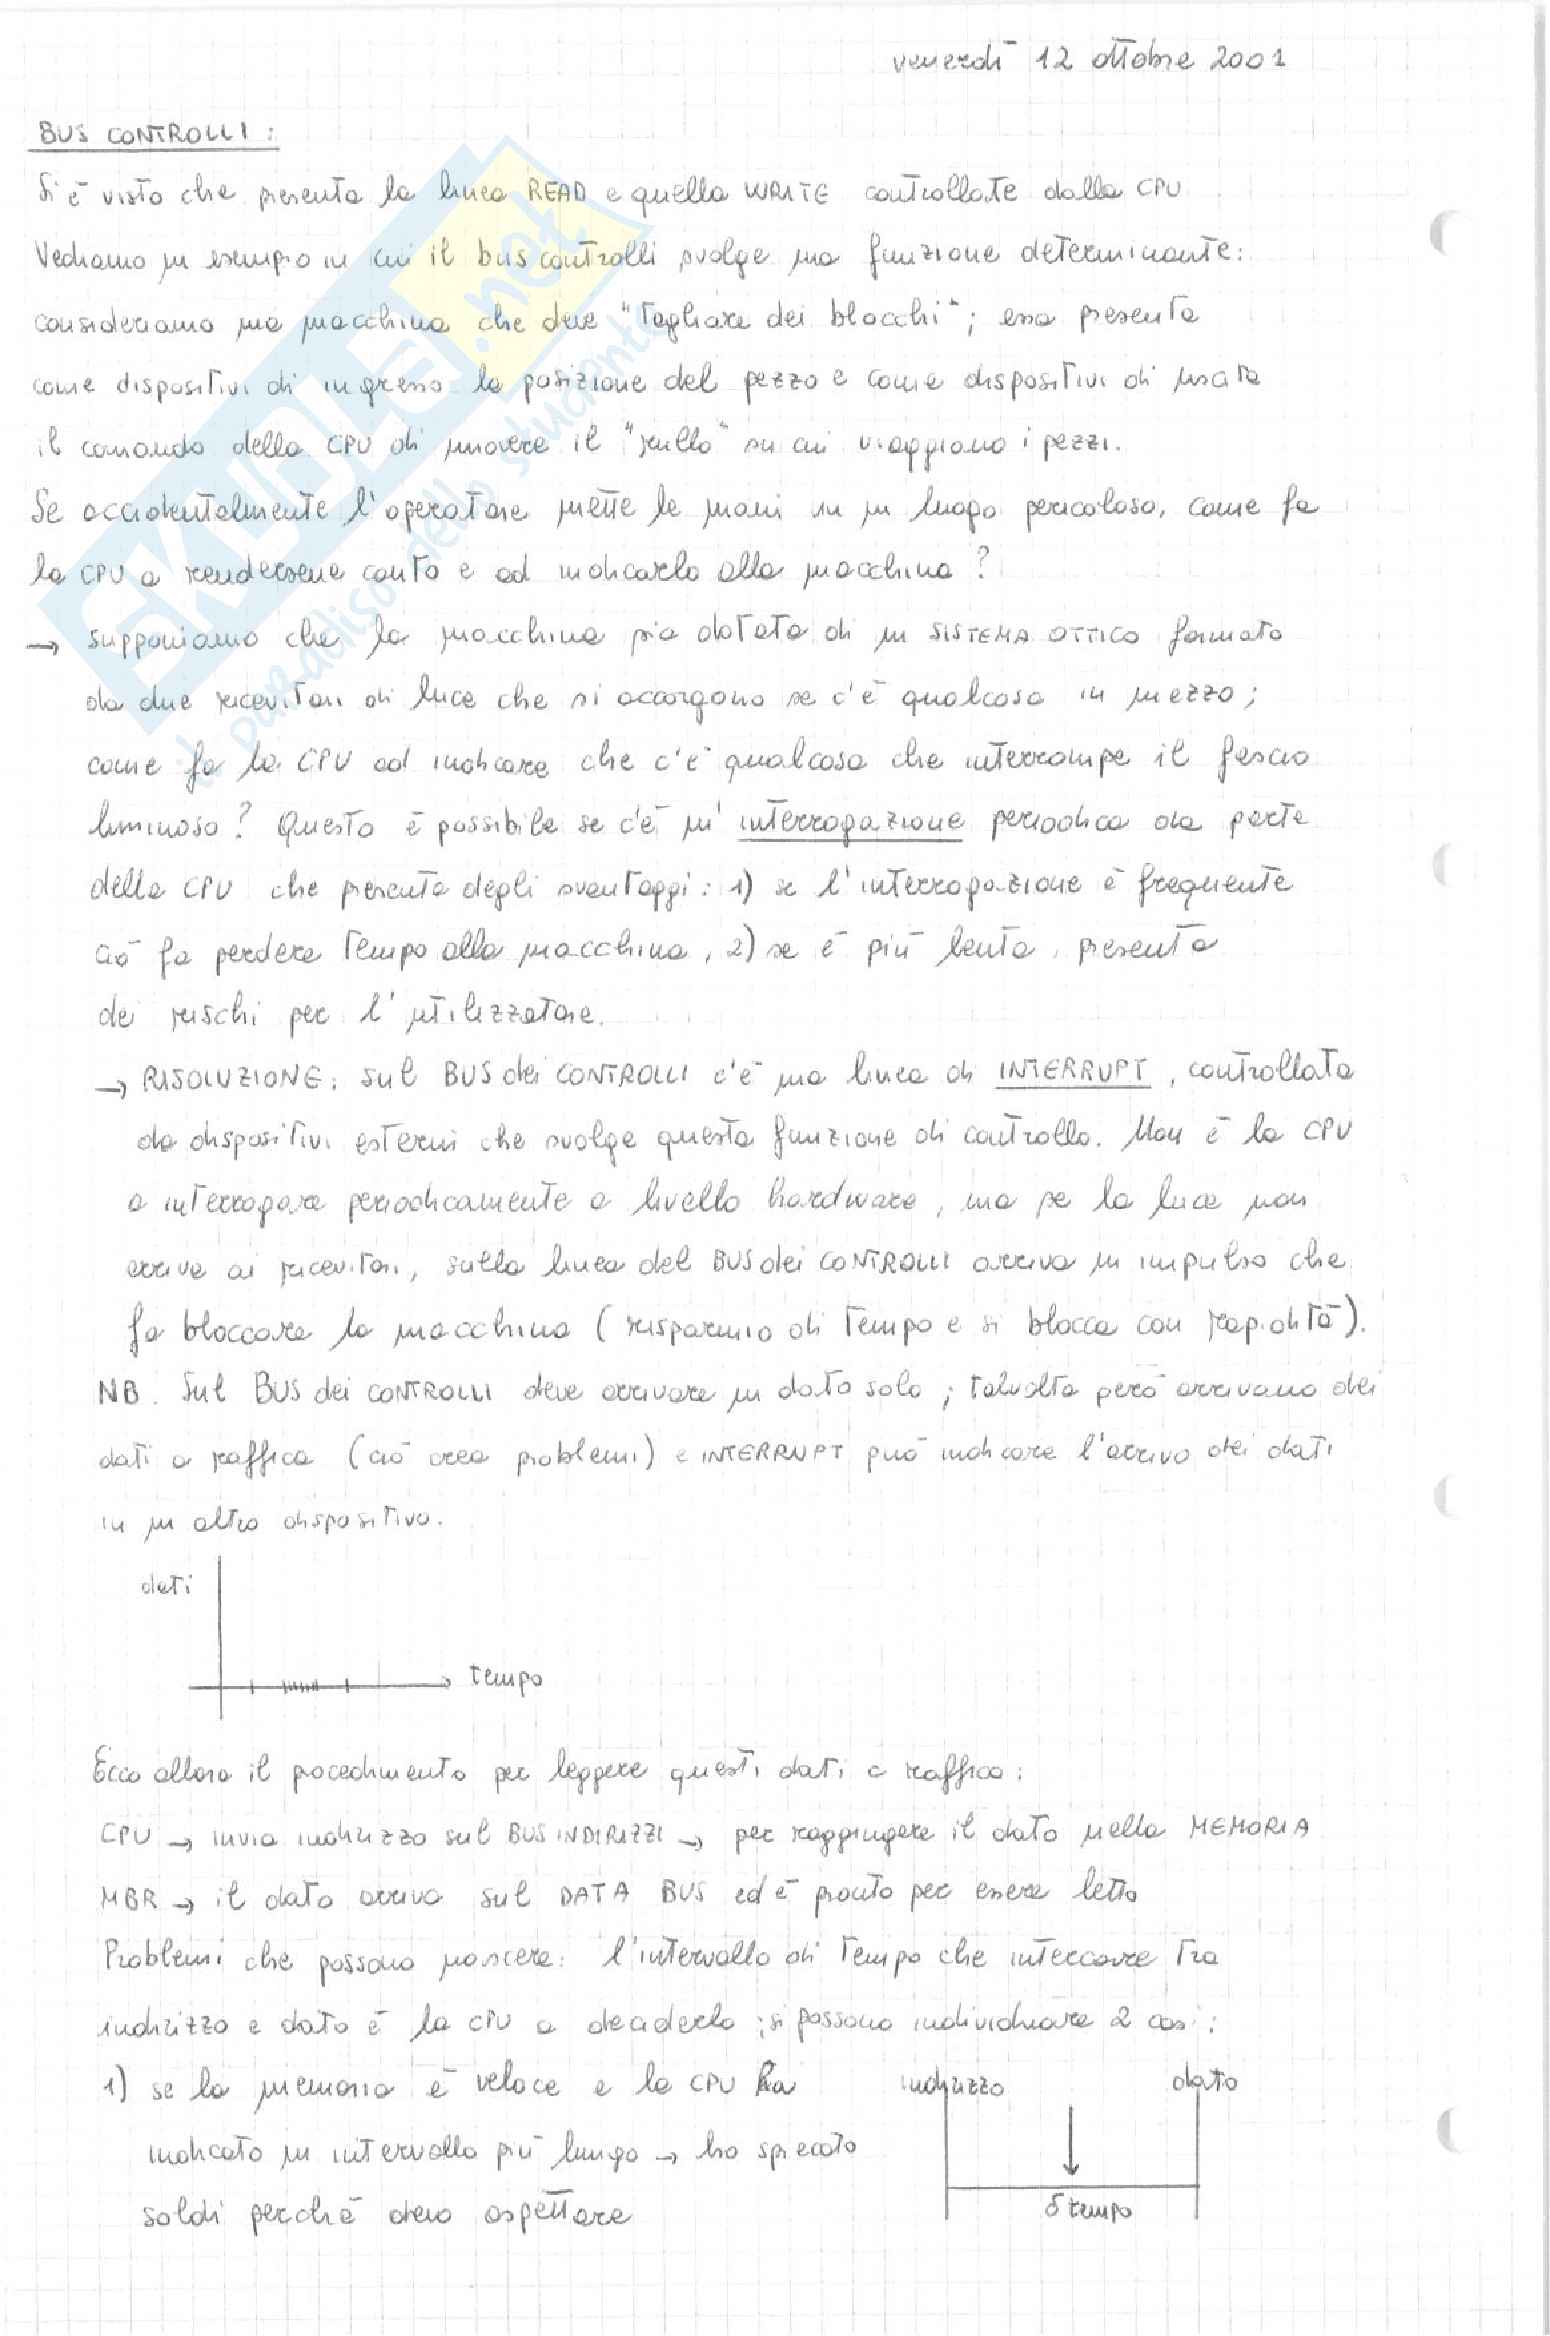 venerdì 12 ottobre 2001
BUS CONTROLLI:
Si è visto che presenta la linea READ e quella WRITE controllate dalla CPU
Vediamo un esempio in cui il bus controlli svolge una funzione determinante:
consideriamo una macchina che deve "tagliare dei blocchi"; essa presenta
come dispositivi di ingresso la posizione del pezzo e come dispositivi di uscita
il comando della CPU di muovere il "rullo" su cui viaggiano i pezzi.
Se accidentalmente l'operatore mette le mani in un luogo pericoloso, come fa
la CPU a rendersene conto e ad indicarlo alla macchina?
→ supponiamo che la macchina sia dotata di un SISTEMA OTTICO formato
da due ricevitori di luce che si accorgono se c'è qualcosa in mezzo;
come fa la CPU ad indicare che c'è qualcosa che interrompe il fascio
luminoso? Questo è possibile se c'è un' interrogazione periodica da parte
della CPU che presenta degli svantaggi: 1) se l'interrogazione è frequente
ciò fa perdere tempo alla macchina, 2) se è più lenta, presenta
dei rischi per l'utilizzatore.
→ RISOLUZIONE: sul BUS dei CONTROLLI c'è una linea di INTERRUPT, controllata
da dispositivi esterni che svolge questa funzione di controllo. Non è la CPU
a interrogare periodicamente a livello hardware, ma se la luce non
arriva ai ricevitori, sulla linea del BUS dei CONTROLLI arriva un impulso che
fa bloccare la macchina (risparmio di tempo e si blocca con rapidità).
NB. Sul BUS dei CONTROLLI deve arrivare un dato solo; talvolta però arrivano dei
dati a raffica (ciò crea problemi) e INTERRUPT può indicare l'arrivo dei dati
in un altro dispositivo.
dati
tempo
Ecco allora il procedimento per leggere questi dati a raffica:
CPU → invia indirizzo sul BUS INDIRIZZI → per raggiungere il dato nella MEMORIA
MBR → il dato arriva sul DATA BUS ed è pronto per essere letto
Problemi che possono nascere: l'intervallo di tempo che intercorre tra
indirizzo e dato è la CPU a deciderlo; si possono individuare 2 casi:
1) se la memoria è veloce e la CPU ha
indicato un intervallo più lungo → ho sprecato
soldi perchè devo aspettare
indirizzo dato
δ tempo
SKUOLA.net
il paradiso dello studente